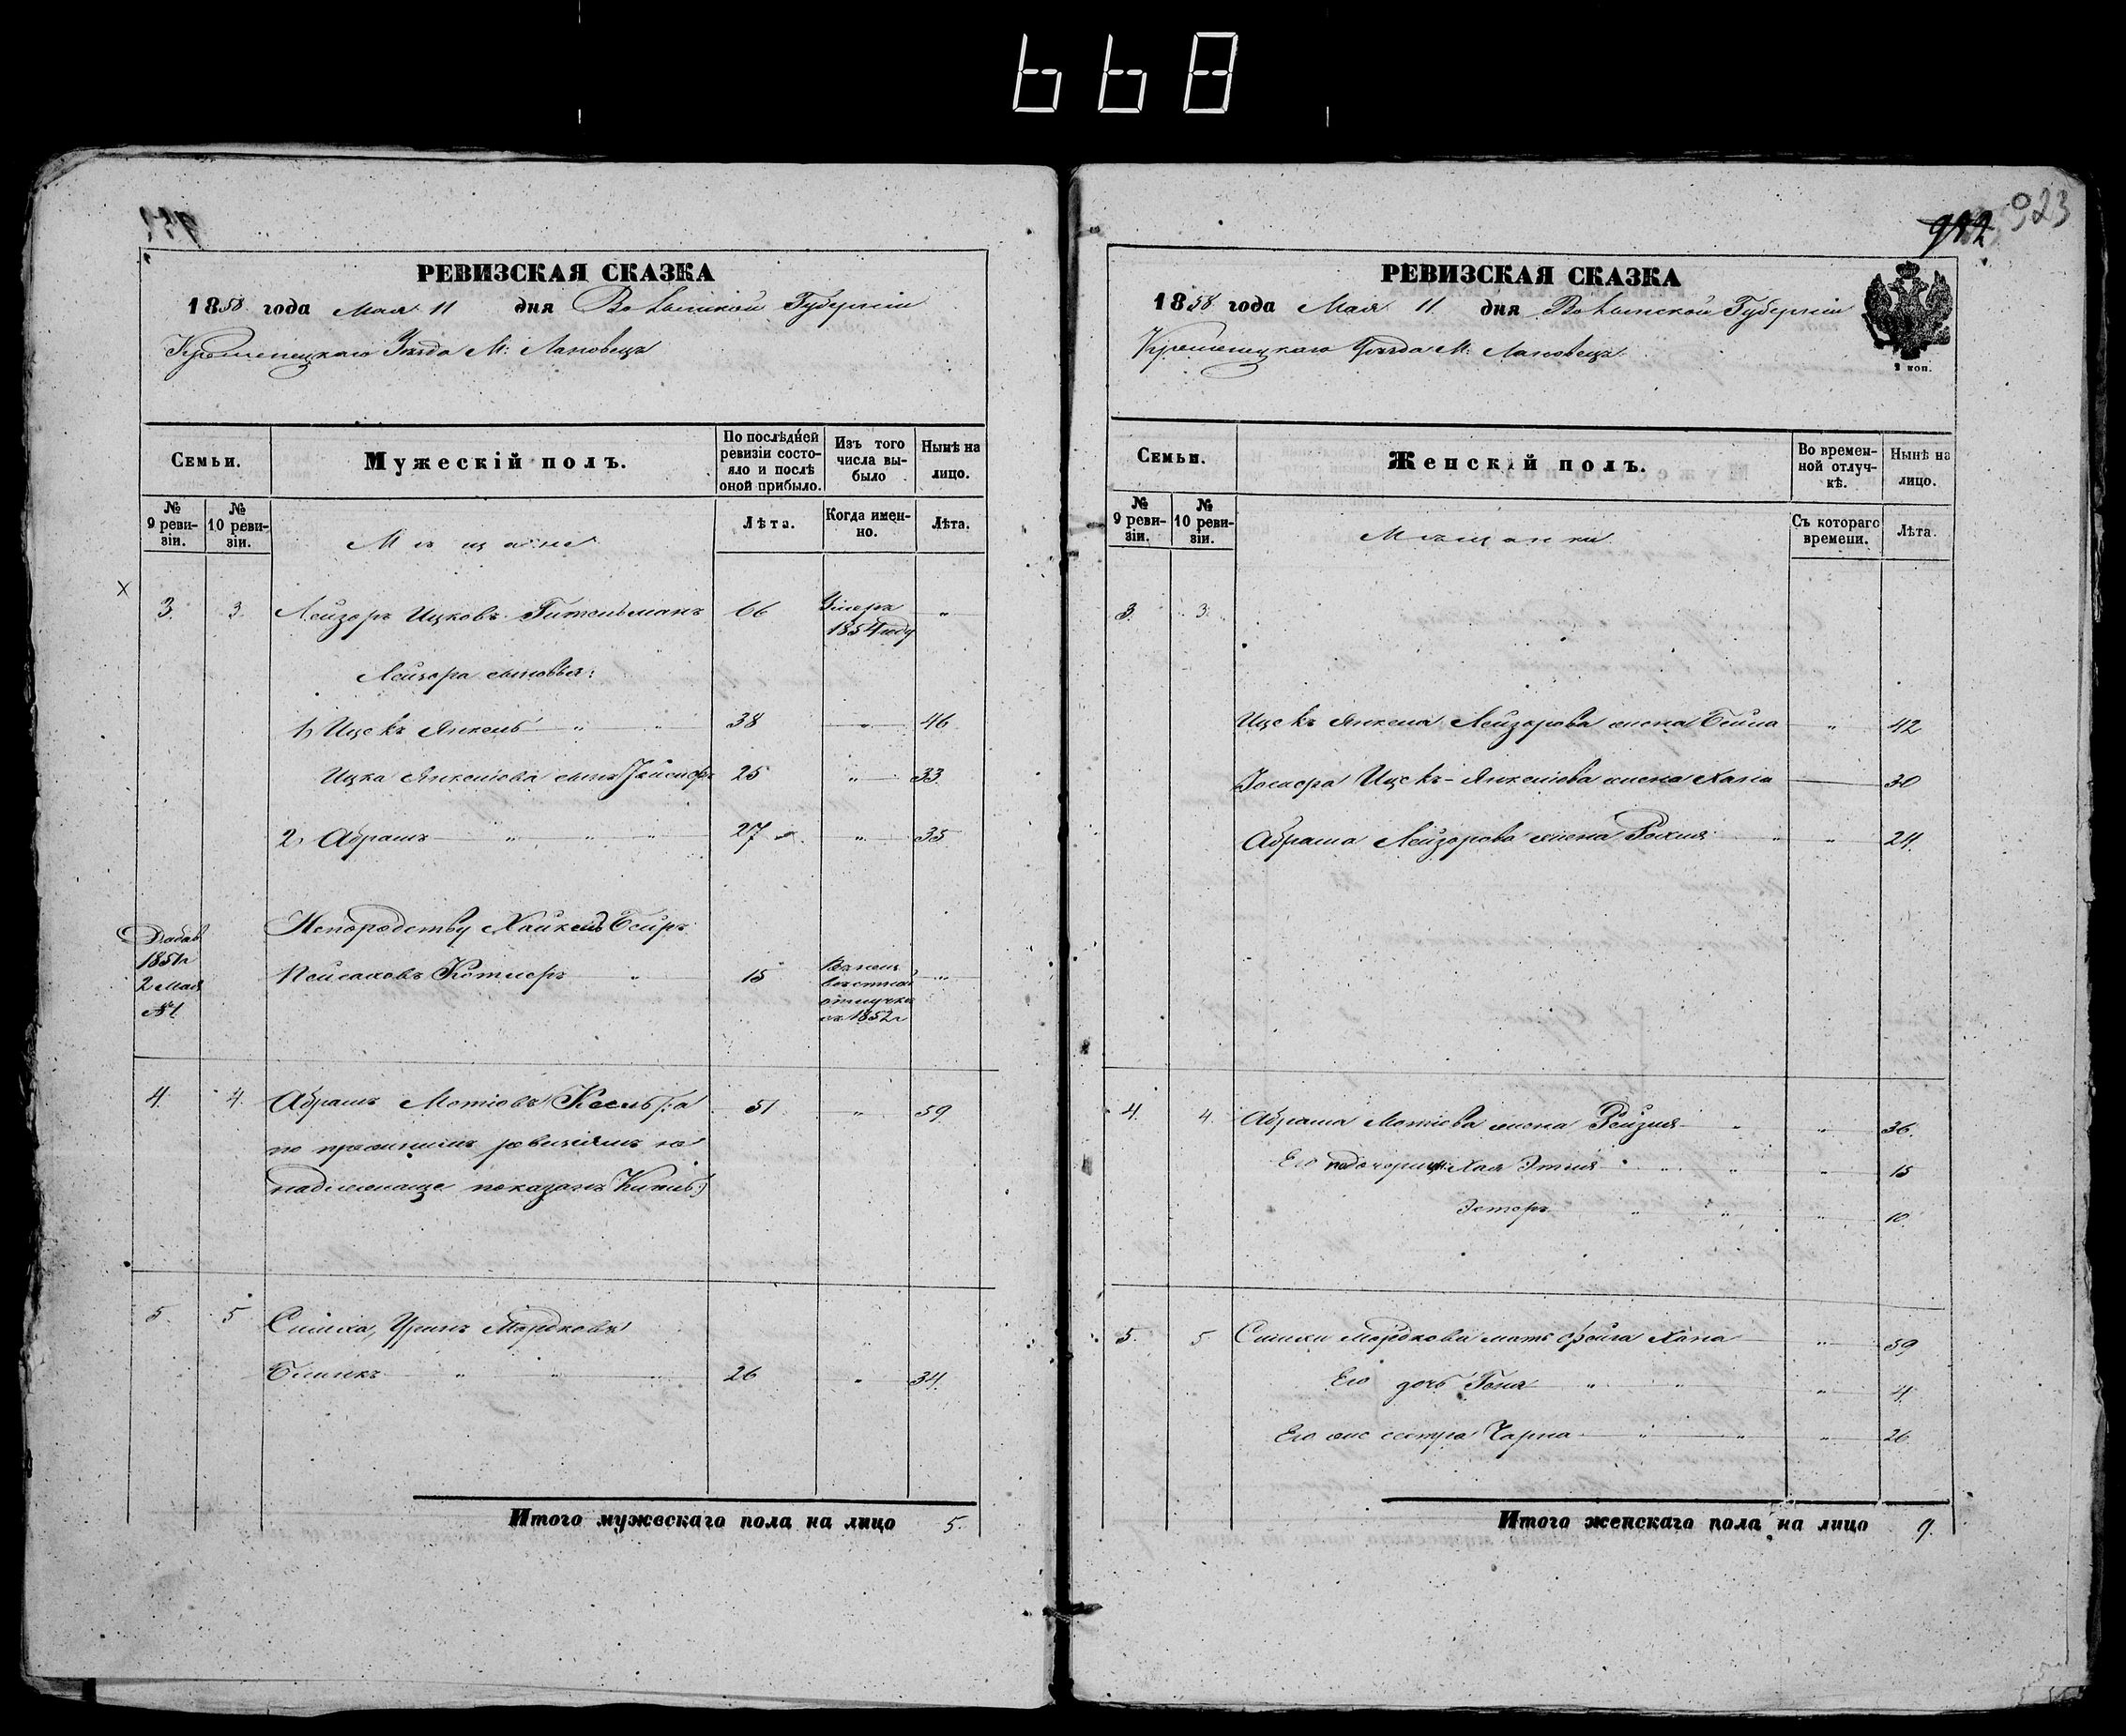 668
РЕВИЗСКАЯ СКАЗКА
1858 года Мая 11 дня Волынской Губерніи
Кременецкаго Уѣзда М: Лановецъ
Семьи.
Мужескій полъ.
По послѣдней ревизіи состояло и послѣ оной прибыло.
Изъ того числа выбыло
Нынѣ на лицо.
№ 9 ревизіи.
№ 10 ревизіи.
Мѣщане
Лѣта.
Когда именно.
Лѣта.
3. 3. Лейзоръ Ицковъ Гительманъ 66 Умеръ 1854 году "
Лейзора сыновья:
1, Ицекъ Янкель " " 38 " 46
Ицка Янкелева сынъ Іойсифъ 25 " 33.
2, Абрамъ " " " 27 " 35
Добав 1851г 2 Мая №1
Непородству Хайкель Бейръ
Пейсаховъ Котлеръ " 15 въ неизвестной отлучке съ 1852г "
4. 4. Абрамъ Мотіовъ Кесель (:а 51 " 59.
по прежнимъ ревизіямъ не
надлежаще показанъ Кисель:)
5 5 Симха, Уринъ Мордковъ
Блинкъ " " " 26 " 34.
Итого мужескаго пола на лицо 5.
942 923
РЕВИЗСКАЯ СКАЗКА
1858 года Мая 11 дня Волынской Губерніи
Кременецкаго Уѣзда М: Лановецъ
2 коп.
Семьи.
Женскій полъ.
Во временной отлучкѣ.
Нынѣ на лицо.
№ 9 ревизіи.
№ 10 ревизіи.
Мѣщанки
Съ котораго времени.
Лѣта.
3. 3.
Ицекъ Янкела Лейзорова жена Бейла " 42
Іосифа Ицекъ-Янкелева жена Хана 30
Абрама Лейзорова жена Рохля " " 24.
4. 4. Абрама Мотіева жена Рейзля " " 36.
Его падчерицы: Хая Этля " " " 15
Эстеръ " " " 10.
5. 5 Симхи Мордкова мать Фейга Хана " 59
Его дочь Геня " " " 4.
Его же сестра Чарна " " " 26
Итого женскаго пола на лицо 9.